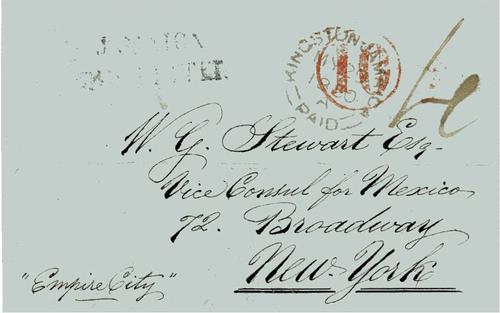 JAMAICA
KINGSTON JAMAICA
PAID
10
W. G. Stewart Esq
Vice Consul for Mexico
72. Broadway
New-York
"Empire City"